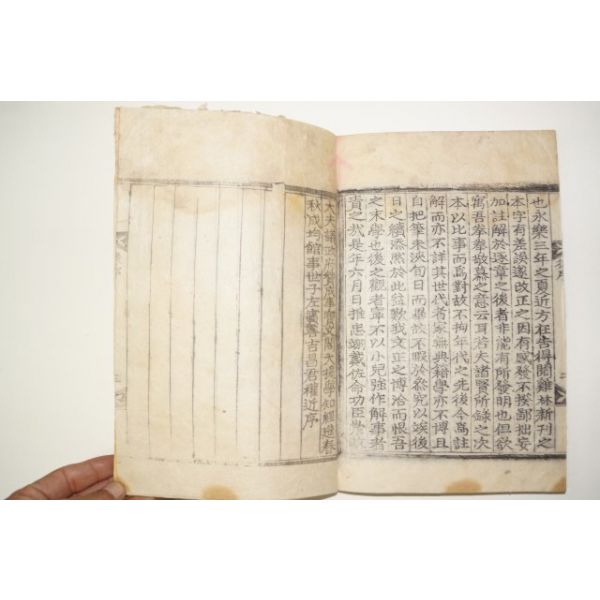 也永樂三年之夏近方在告得閱雞林新刊之
本字有差誤遂改正之因有感發不揆鄙拙妄
加註解於逐章之後者非能有所發明也但欲
寓吾拳拳敬慕之意云耳若夫諸賢所錄之次
本以比事而爲對故不拘年代之先後今爲註
解而亦不詳其世代者家無典籍學亦不博且
自把筆未浹旬日而畢故不暇於叅究以竢後
日之續添然於此益歎我文正之博洽而恨吾
之末學也後之觀者寧不以小兒強作解事者
責之哉是年六月日推忠翊戴佐命功臣
大夫議政府贊成事寶文閣大提學知經筵春
秋成均館事世子左賓客吉昌君權近序